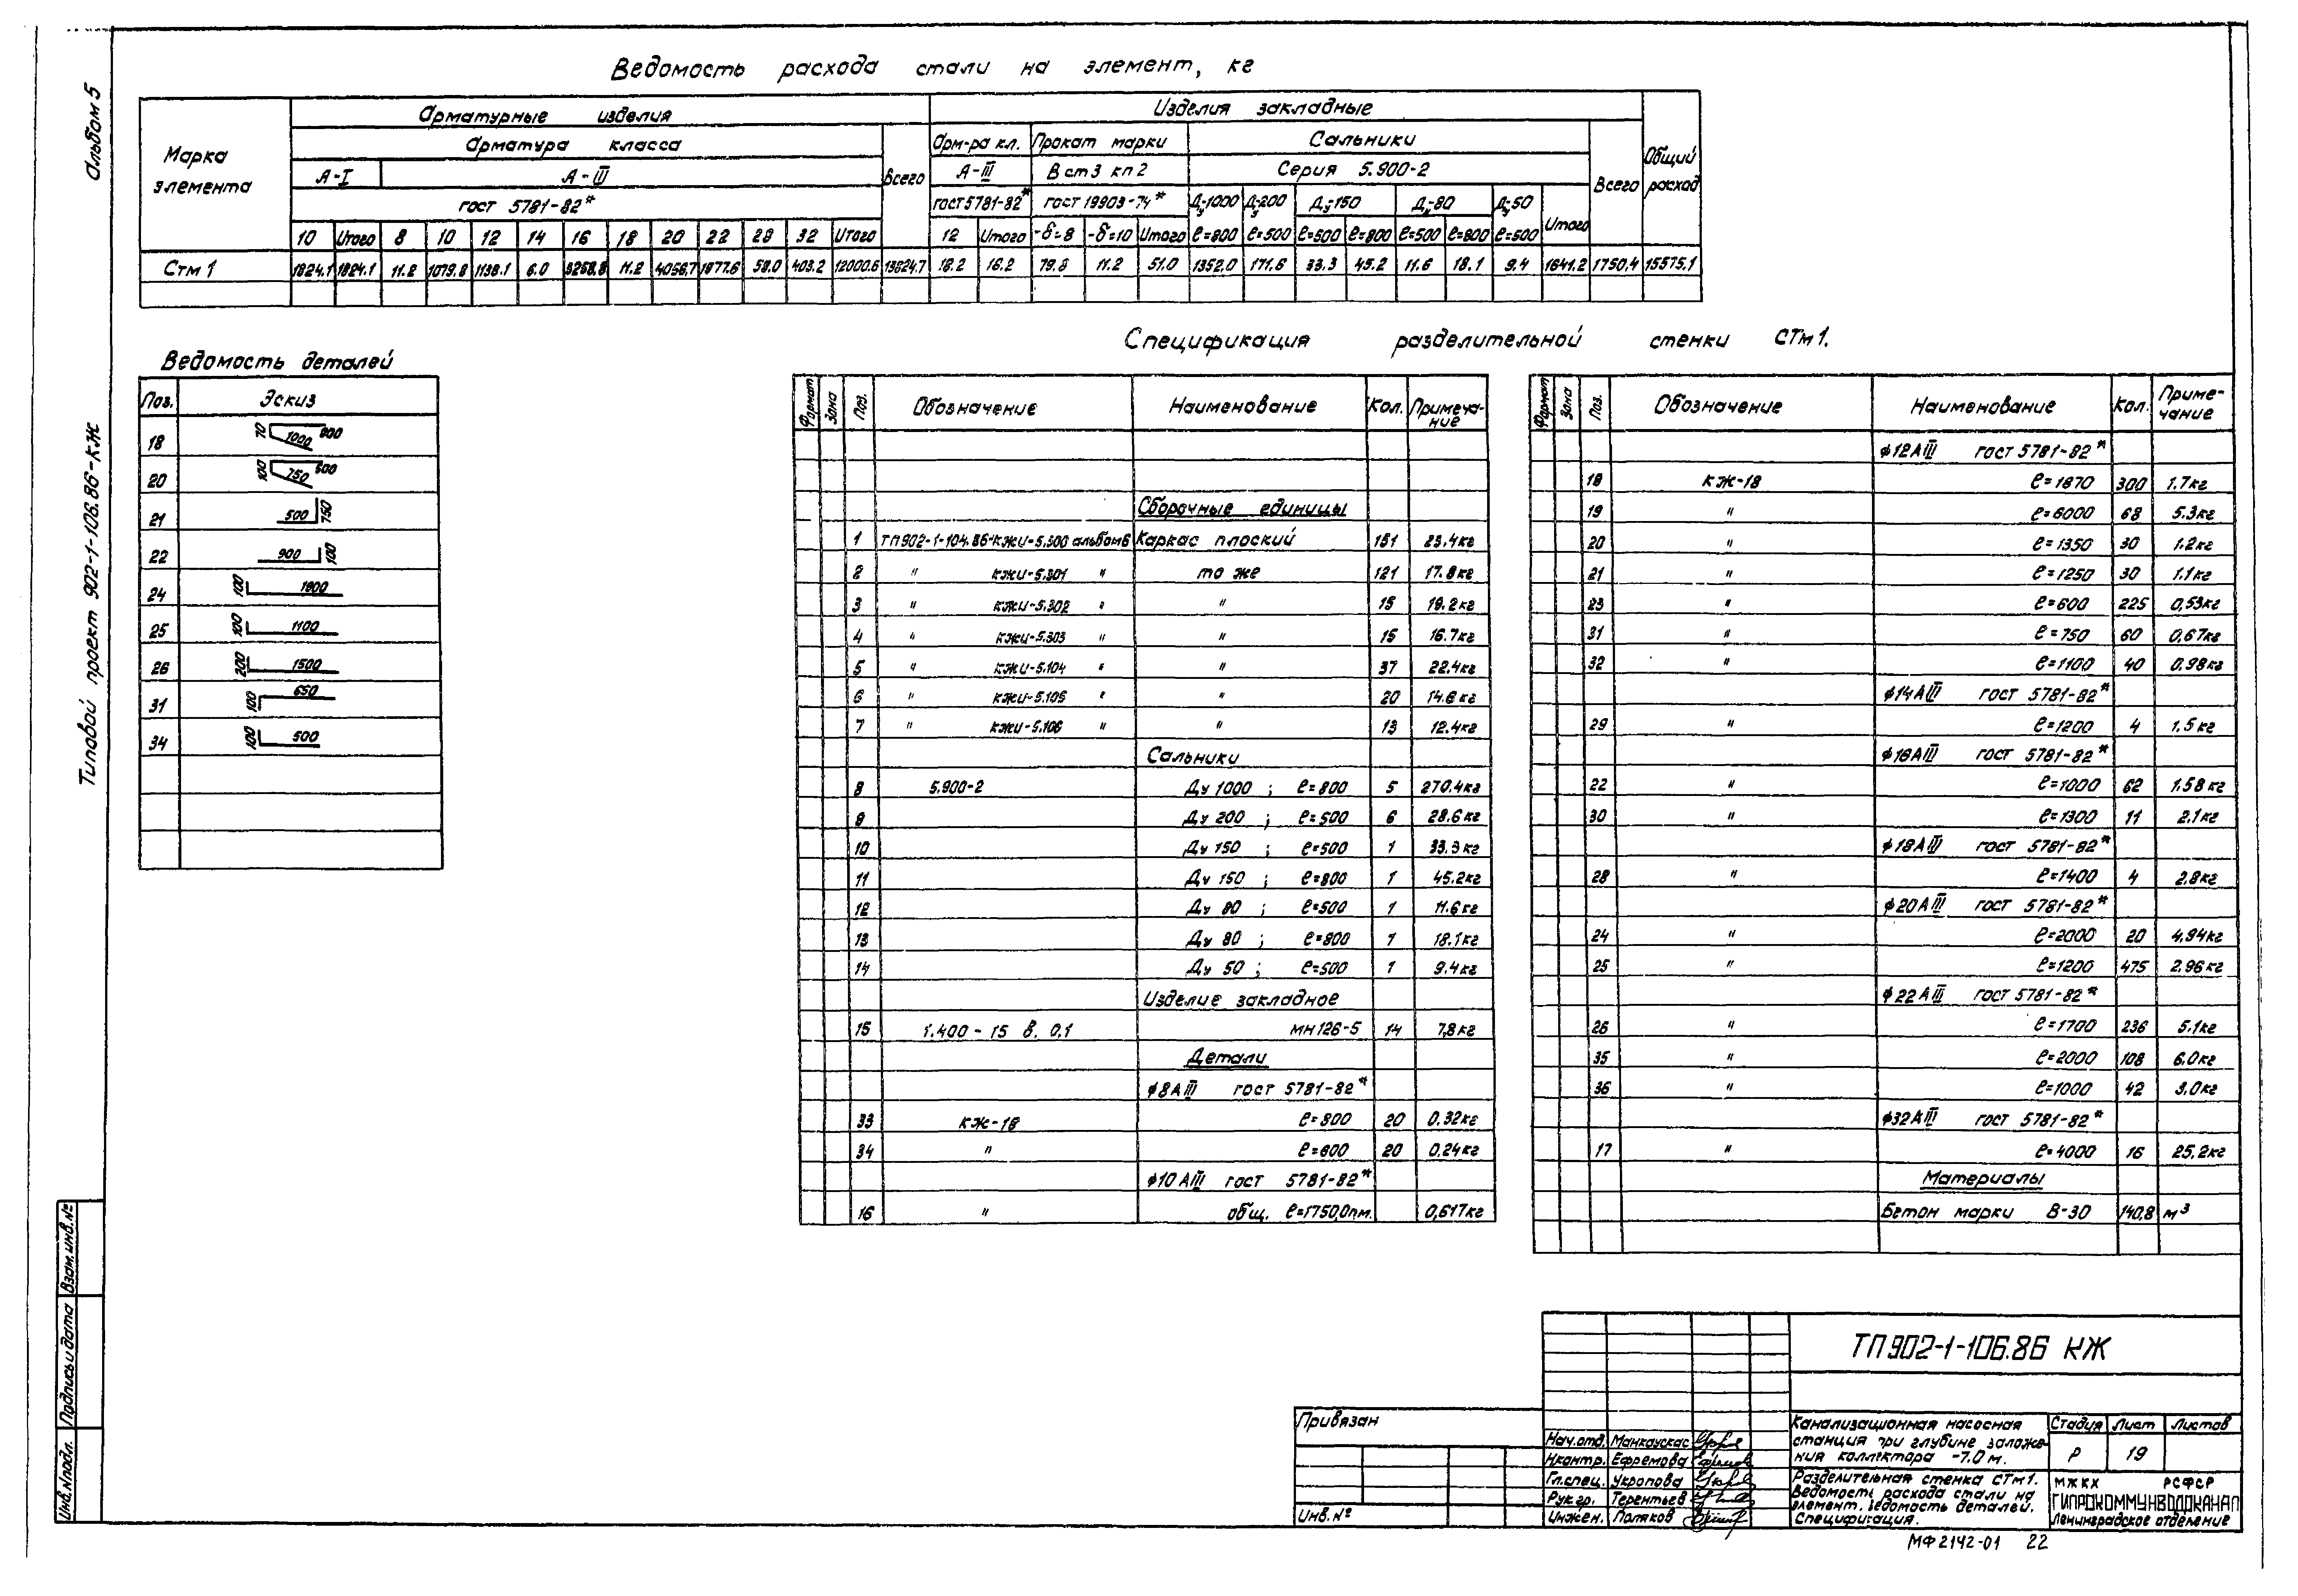 Альбом 5
Типовой проект 902-1-106.86-КЖ
Ведомость расхода стали на элемент, кг
Марка элемента
Арматурные изделия
Изделия закладные
Общий расход
Арматура класса
Всего
Арм-ра кл.
Прокат марки
Сальники
Всего
А-I
А-III
А-III
Вст3 кп2
Серия 5.900-2
ГОСТ 5781-82*
ГОСТ 5781-82*
ГОСТ 19903-74*
Ду-1000
Ду-200
Ду-150
Ду-80
Ду-50
Итого
10 Итого 8 10 12 14 16 18 20 22 28 32 Итого 12 Итого -δ=8 -δ=10 Итого ℓ=800 ℓ=500 ℓ=500 ℓ=800 ℓ=500 ℓ=800 ℓ=500
Стм 1 1824.1 1824.1 11.2 1079.8 1138.1 6.0 3258.8 11.2 4056.7 1977.6 58.0 403.2 12000.6 13824.7 18.2 18.2 79.8 11.2 51.0 1352.0 171.6 33.3 45.2 11.6 18.1 9.4 1641.2 1750.4 15575.1
Ведомость деталей
Поз. Эскиз
18 70 1000 800
20 100 750 500
21 500 750
22 900 100
24 100 1900
25 100 1100
26 200 1500
31 100 650
34 100 500
Спецификация разделительной стенки СТм1.
Формат Зона Поз. Обозначение Наименование Кол. Примечание
Сборочные единицы
1 ТП902-1-104.86-КЖИ-5.300 альбом6 Каркас плоский 151 23.4кг
2 " КЖИ-5.301 " то же 121 17.8кг
3 " КЖИ-5.302 " " 15 19.2кг
4 " КЖИ-5.303 " " 15 16.7кг
5 " КЖИ-5.104 " " 37 22.4кг
6 " КЖИ-5.105 " " 20 14.6кг
7 " КЖИ-5.106 " " 13 12.4кг
Сальники
8 5.900-2 Ду 1000 ; ℓ=800 5 270.4кг
9 Ду 200 ; ℓ=500 6 28.6кг
10 Ду 150 ; ℓ=500 1 33.3кг
11 Ду 150 ; ℓ=800 1 45.2кг
12 Ду 80 ; ℓ=500 1 11.6кг
13 Ду 80 ; ℓ=800 1 18.1кг
14 Ду 50 ; ℓ=500 1 9.4кг
Изделие закладное
15 1.400-15 в. 0.1 МН126-5 14 7,8кг
Детали
ϕ8АIII ГОСТ 5781-82*
33 КЖ-18 ℓ=800 20 0.32кг
34 " ℓ=600 20 0.24кг
ϕ10АIII ГОСТ 5781-82*
16 " общ. ℓ=1750,0п.м. 0,617кг
Формат Зона Поз. Обозначение Наименование Кол. Примечание
ϕ12АIII ГОСТ 5781-82*
18 КЖ-18 ℓ=1870 300 1.7кг
19 " ℓ=6000 68 5.3кг
20 " ℓ=1350 30 1.2кг
21 " ℓ=1250 30 1.1кг
23 " ℓ=600 225 0,53кг
31 " ℓ=750 60 0,67кг
32 " ℓ=1100 40 0.98кг
ϕ14АIII ГОСТ 5781-82*
29 " ℓ=1200 4 1.5кг
ϕ16АIII ГОСТ 5781-82*
22 " ℓ=1000 62 1.58кг
30 " ℓ=1300 11 2.1кг
ϕ18АIII ГОСТ 5781-82*
28 " ℓ=1400 4 2.8кг
ϕ20АIII ГОСТ 5781-82*
24 " ℓ=2000 20 4.94кг
25 " ℓ=1200 475 2.96кг
ϕ22АIII ГОСТ 5781-82*
26 " ℓ=1700 236 5.1кг
35 " ℓ=2000 108 6.0кг
36 " ℓ=1000 42 3.0кг
ϕ32АIII ГОСТ 5781-82*
17 " ℓ=4000 16 25.2кг
Материалы
Бетон марки В-30 140,8 м³
Инв.№подл. Подпись и дата Взам.инв.№
Привязан
Инв.№
Нач.отд. Манкаускас
Н.контр. Ефремова
Гл.спец. Укропова
Рук.гр. Терентьев
Инжен. Поляков
ТП902-1-106.86 КЖ
Канализационная насосная станция при глубине заложения коллектора -7.0м.
Стадия Лист Листов
Р 19
Разделительная стенка СТм1. Ведомость расхода стали на элемент. Ведомость деталей. Спецификация.
МЖКХ РСФСР
ГИПРОКОММУНВОДОКАНАЛ
Ленинградское отделение
МФ2142-01 22